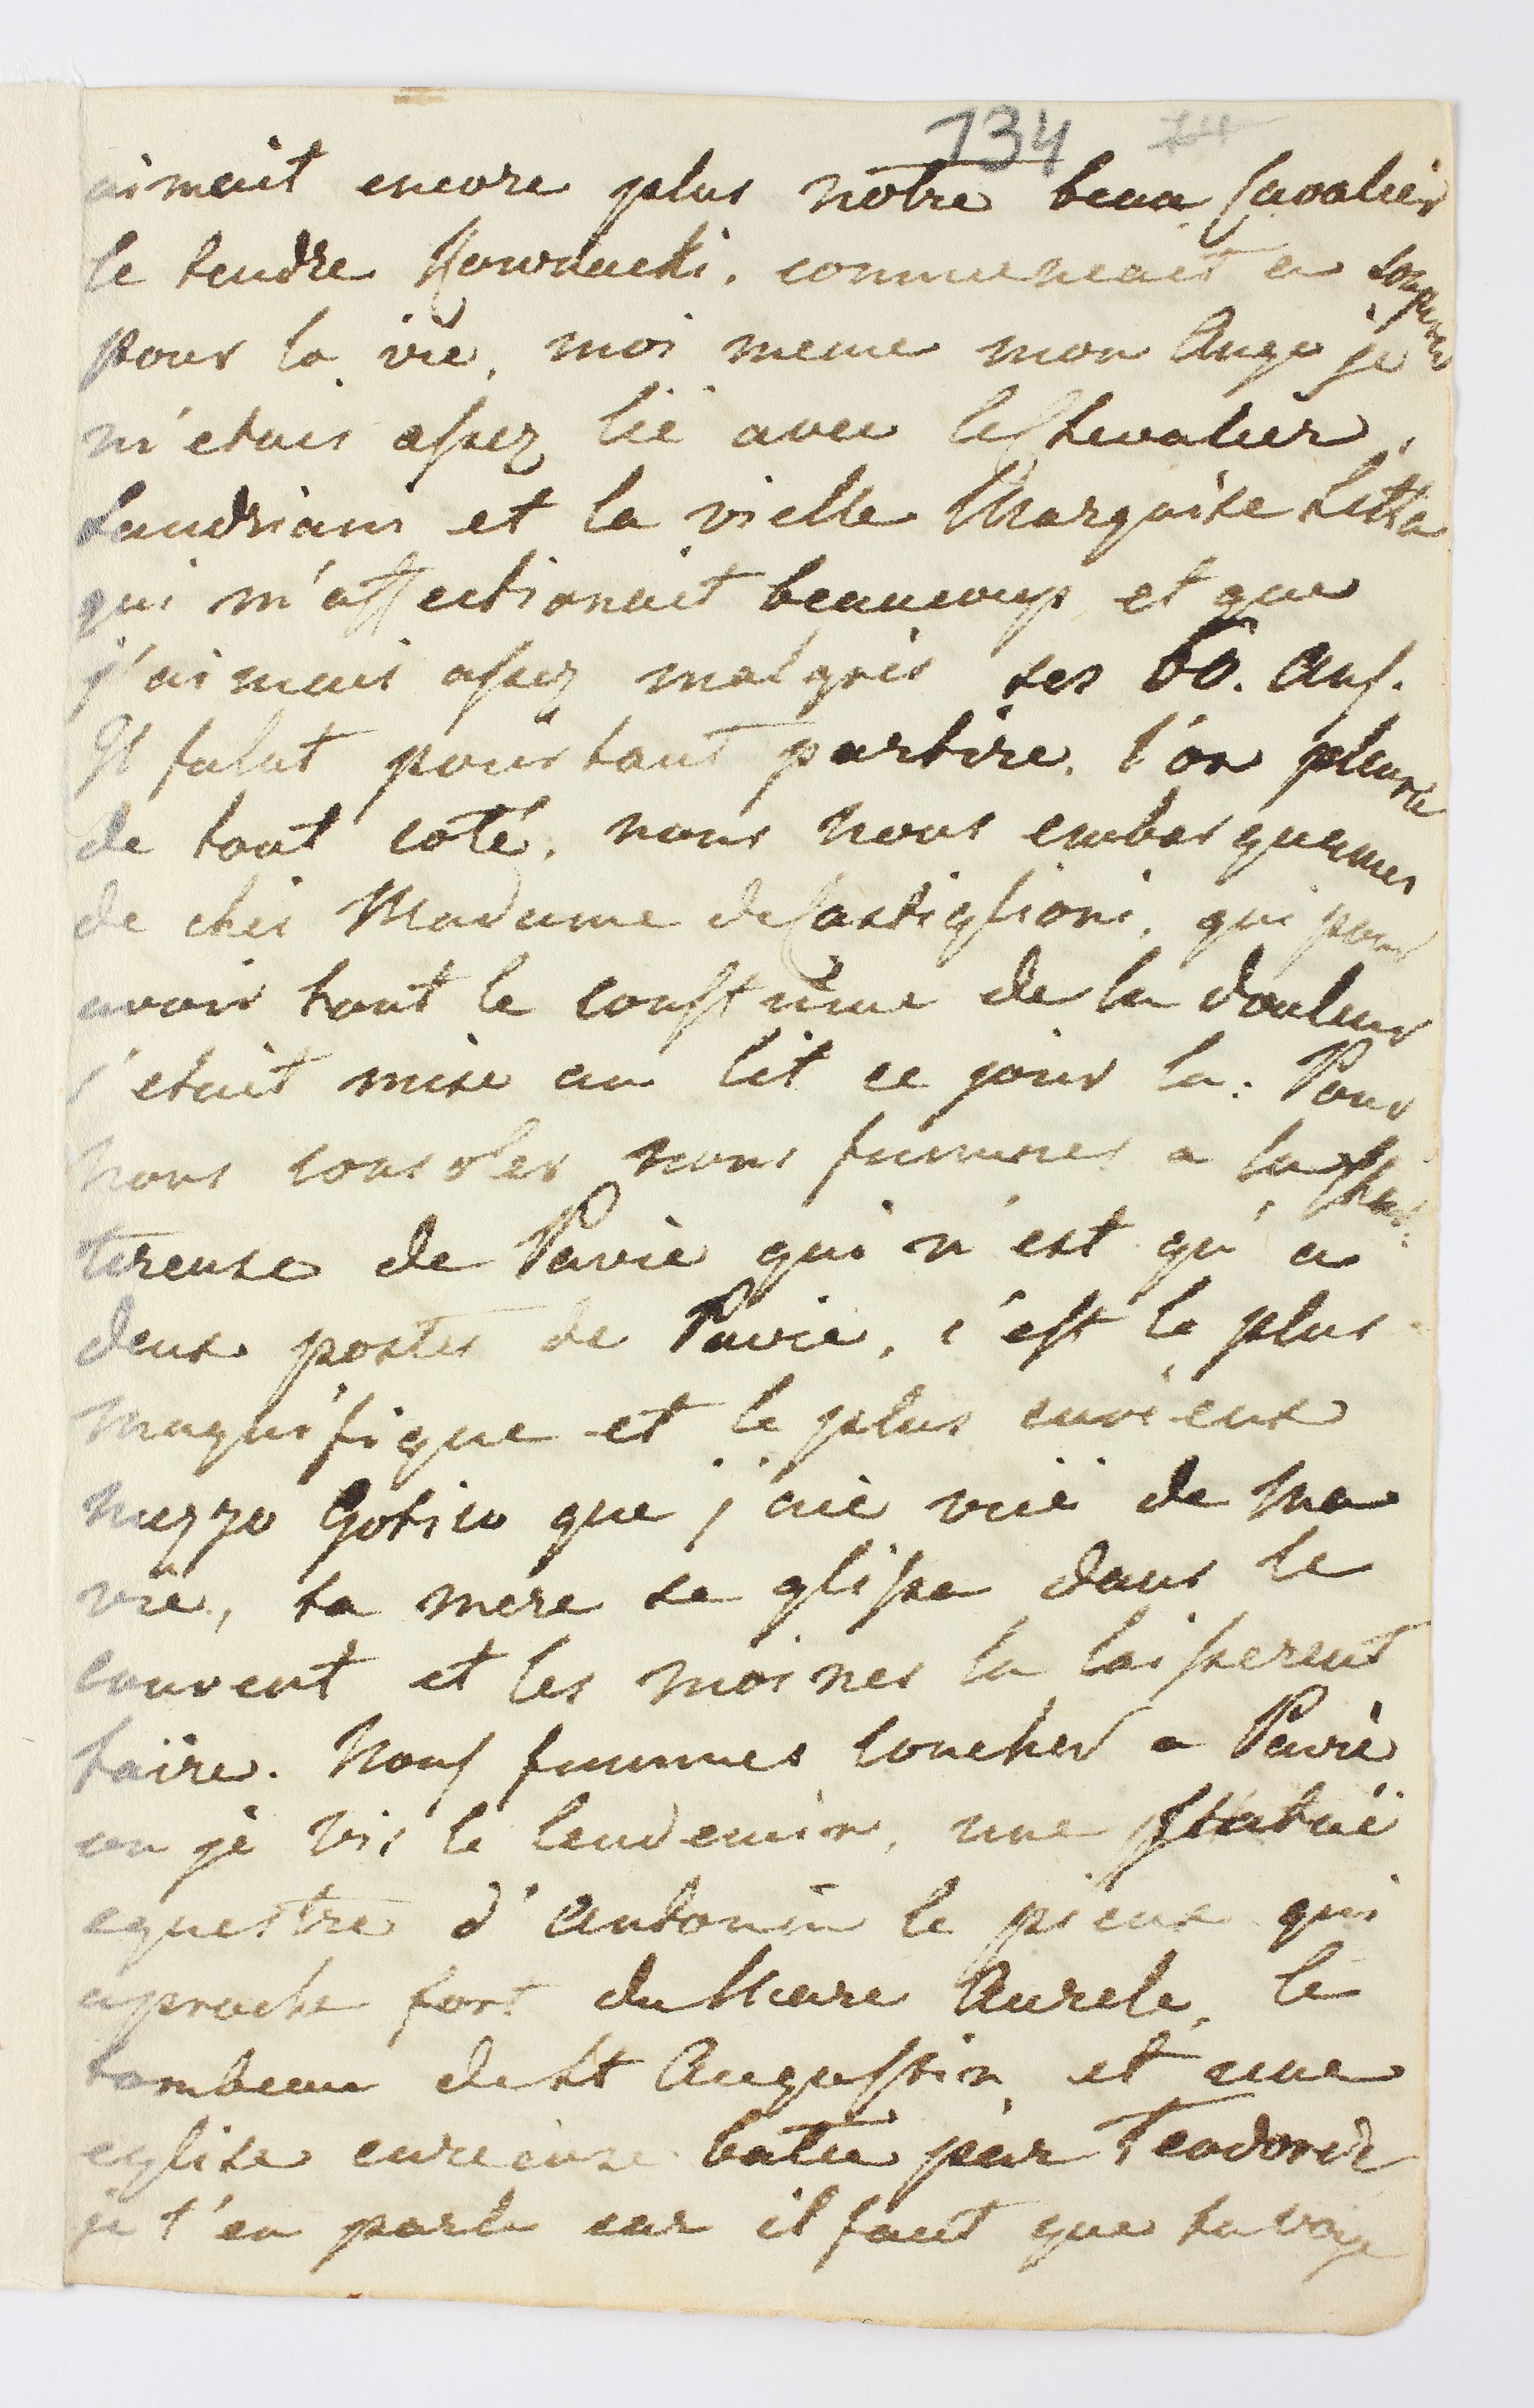 134
aimait encore plus notre beau Cavalier
le tendre commencait a soupirer
pour la vie, moi meme mon Ange je
m'etais assez lié avec le Chevalier
Landriani et la vielle Marquise Litta
qui m'affectionait beaucoup et que
j'aimais assez malgrés ses 60. Ans.
Il falut pourtant partire, l'on pleura
de tout coté, nous nous embarquames
de chés Madame de Castiglioni, qui pour
avoir tout le coustume de la douleur
s'etait mise au lit ce jour la: Pour
nous consoler nous fummes a la Char-
tereuse de Pavie qui n'est qu'a
deux postes de Pavie, c'est le plus
magnifique et le plus curieux
mezzo Gotico que j'aie vuë de ma
vie, ta mere se glissa dans le
couvent et les moines la laisserent
faire. Nous fummes coucher a Pavie
ou je vis le lendemain, une statuë
equestre d'Antonin le pieux qui
aproche fort du Marc Aurele, le
tombeau de St Augustin et une
eglise curieuse batie par Teodoric
je t'en parle car il faut que tu voye